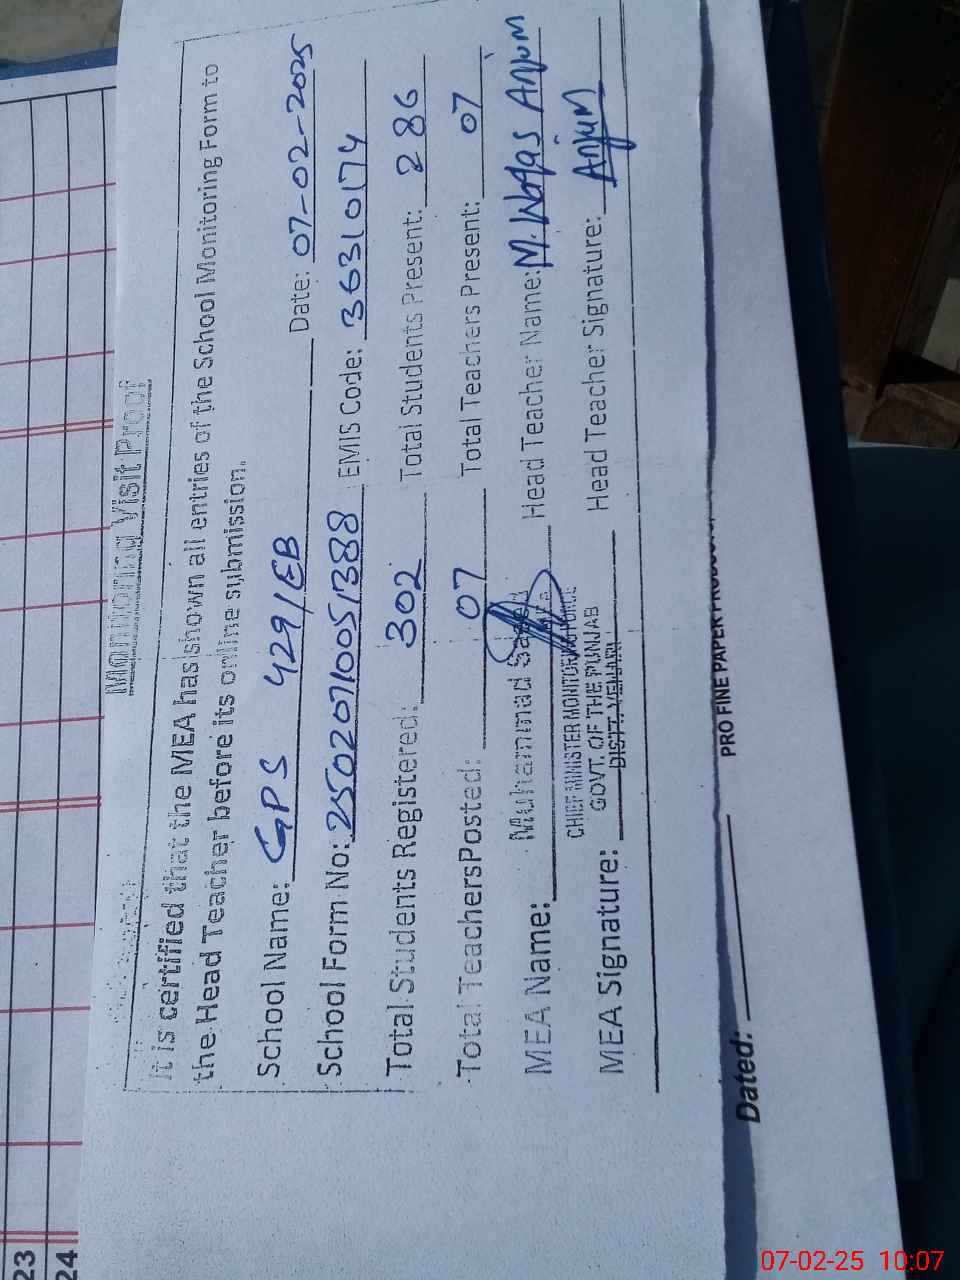 Monitoring Visit Proof
It is certified that the MEA has shown all entries of the School Monitoring Form to
the Head Teacher before its online submission.
School Name: GPS 429/EB Date: 07-02-2025
School Form No: 25020710051388 EMIS Code: 36310174
Total Students Registered: 302 Total Students Present: 286
Total Teachers Posted: 07 Total Teachers Present: 07
MEA Name: Muhammad Head Teacher Name: M. Waqas Anjum
CHIEF MINISTER MONITORING FORCE
GOVT. OF THE PUNJAB
DISTT. VEHARI
MEA Signature: Head Teacher Signature: Anjum
23
24
PRO FINE PAPER
Dated:
07-02-25 10:07